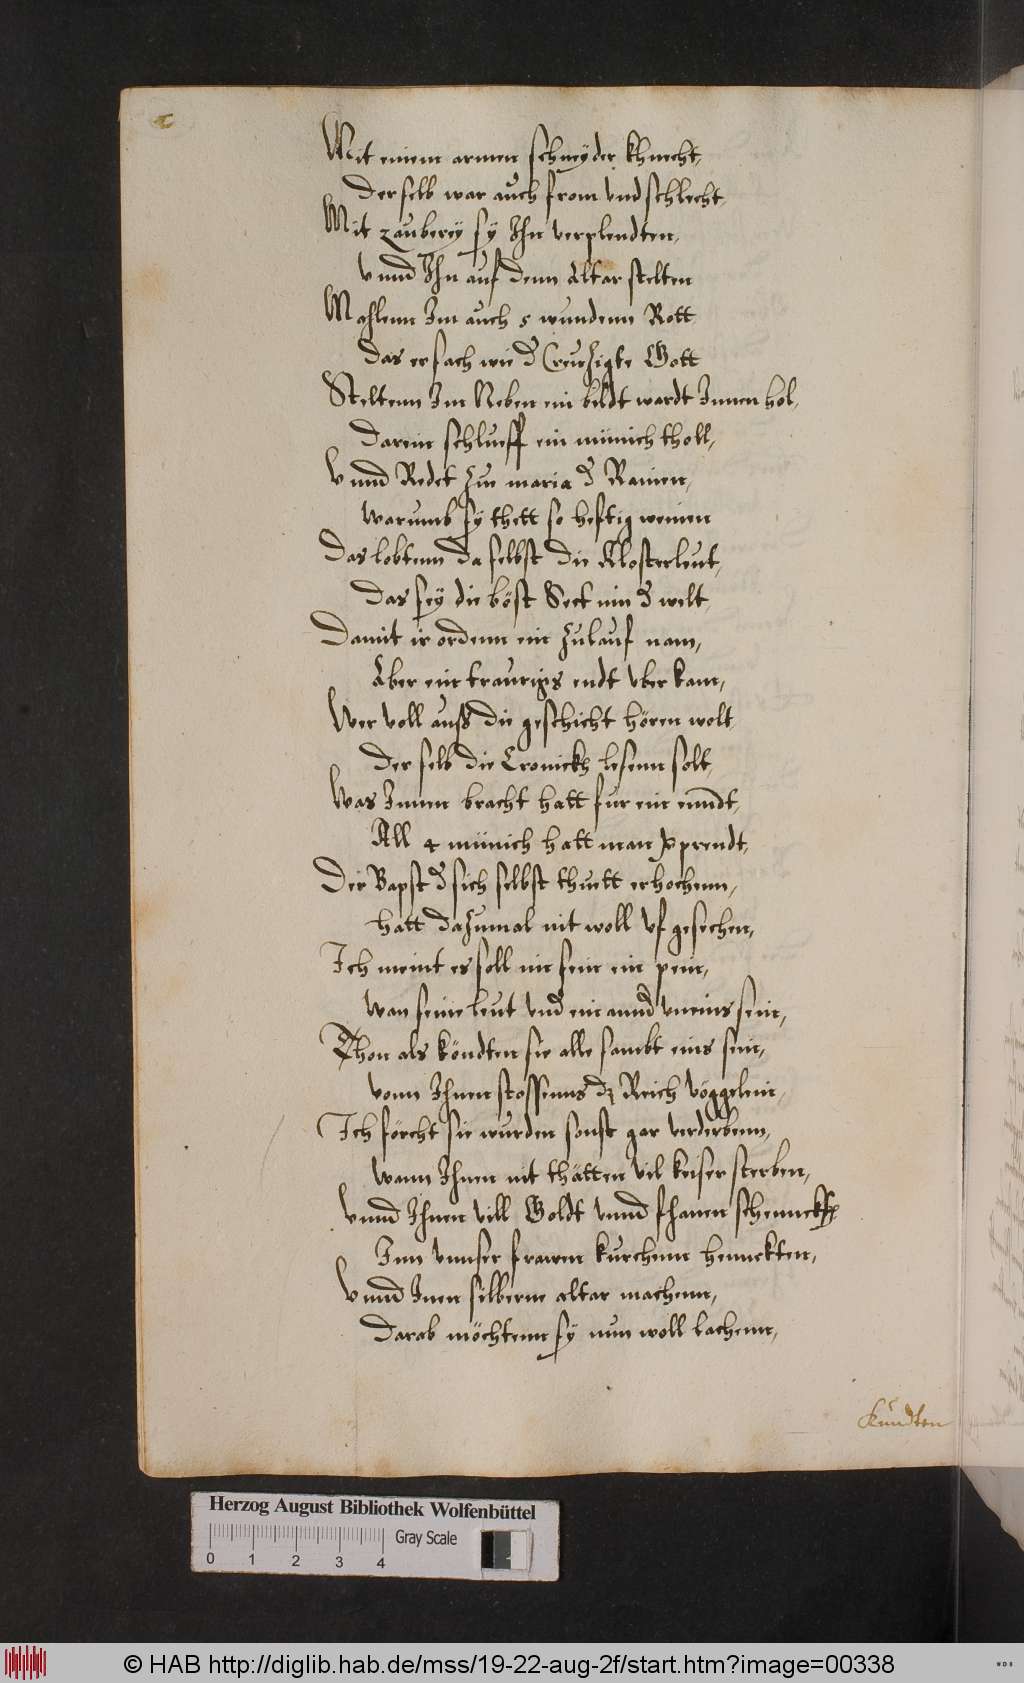 Mit einem armen schneyder khnecht,
Der selb war auch from vnd schlecht,
Mit zauberey sy Ihn verplendten,
vnnd Ihn auf denn Altar stelten
Mahlenn Im auch 5 wundenn Rott
das er sach wie d Creuzigte Gott
Steltenn Im Neben ein bildt wardt Innen hol,
darein schlueff ein münich tholl,
vnnd Redet zue maria d Rainen,
warumb sy thett so heftig weinen
Das lobtenn da selbst die Klosterleut,
das sey die böst Sect inn d welt,
Damit ir ordenn ein zulauf nam,
Aber ein traurigs endt vber kam,
Wer voll auß die geschicht hören wolt
der selb die Cronickh lesenn solt,
Was Innen bracht hatt für ein enndt,
All 4 münich hatt man verprendt,
Der Bapst d sich selbst thuett erhochenn,
hatt dazumal nit woll vf gesechen,
Ich meint es soll im sein ein pein,
wan seine leut vnd ein annd vneins sein,
Thon als köndten sie alle sambt eins sein,
vonn Ihnen stossenns dz Reich vöggelein,
Ich förcht sie wurden sonst gar verderbenn,
wann Ihnen nit thätten vil keiser sterben,
vnnd Ihnen vill Goldt vnnd fhanen schennckhen
Inn vnnser frawen kürchenn hennckten,
vnnd Inen silberne altar machenn,
darab möchtenn sy nun woll lachenn,
Kündten
Herzog August Bibliothek Wolfenbüttel
Gray Scale
0 1 2 3 4
© HAB http://diglib.hab.de/mss/19-22-aug-2f/start.htm?image=00338